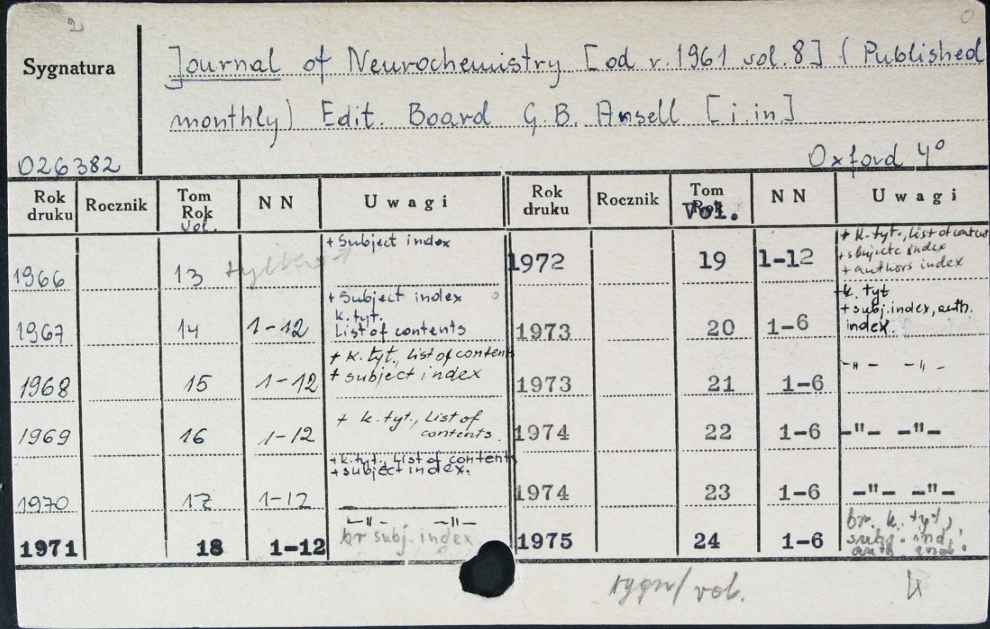 2
Sygnatura
Journal of Neurochemistry [od r. 1961 vol. 8] (Published
monthly) Edit. Board G. B. Ansell [i. in.]
026382
Oxford 4°
Rok druku Rocznik Tom Rok Vol. NN Uwagi Rok druku Rocznik Tom Rok Vol. NN Uwagi
1966 13 + Subject index
1967 14 1-12 + Subject index
k. tyt.
List of contents
1968 15 1-12 + k. tyt., list of contents
+ subject index
1969 16 1-12 + k. tyt., List of
contents.
1970 17 1-12 + k. tyt., List of contents
+ subject index.
1971 18 1-12 -"- -"-
br subj. index
1972 19 1-12 + k. tyt., list of
+ subjects index
+ authors index
1973 20 1-6 + k. tyt
+ subj. index, auth.
index.
1973 21 1-6 -"- -"-
1974 22 1-6 -"- -"-
1974 23 1-6 -"- -"-
1975 24 1-6 br. k. tyt,
subj. ind,
auth. ind.
sygn/vol.